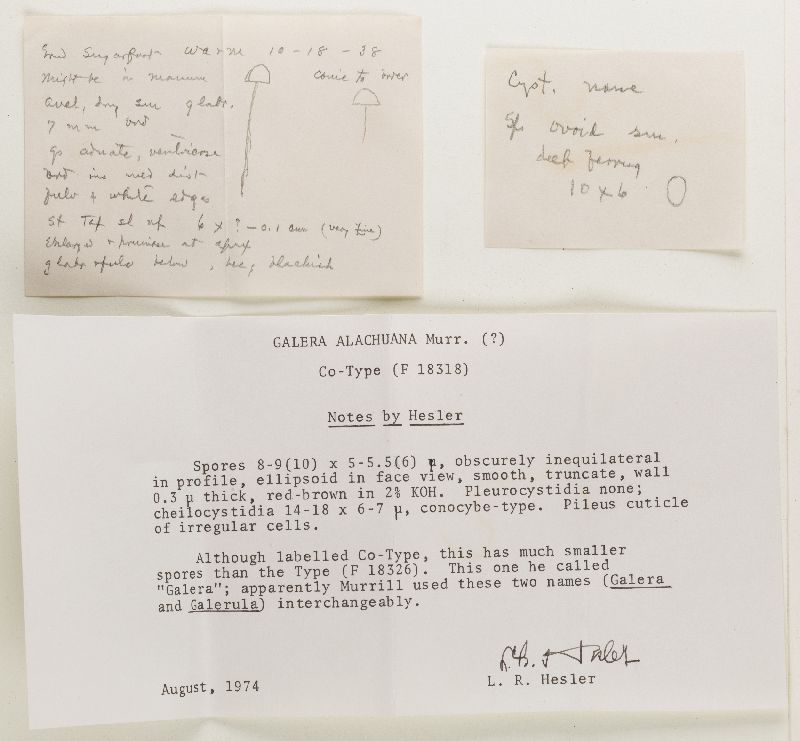 Sugarfoot Warm 10-18-38
might be in manure conic to over
avel, dry sm glabr.
7 mm
gs adnate, ventricose
ins med dist
fulv & white edges
St Tap sl up 6 x ? - 0.1 cm (very fine)
Enlarged & pruinose at apex
glabr & fulv below, sec, blackish
Cyst. none
Sp ovoid sm.
deep ferrug
10 x 6
GALERA ALACHUANA Murr. (?)
Co-Type (F 18318)
Notes by Hesler
Spores 8-9(10) x 5-5.5(6) µ, obscurely inequilateral
in profile, ellipsoid in face view, smooth, truncate, wall
0.3 µ thick, red-brown in 2% KOH. Pleurocystidia none;
cheilocystidia 14-18 x 6-7 µ, conocybe-type. Pileus cuticle
of irregular cells.
Although labelled Co-Type, this has much smaller
spores than the Type (F 18326). This one he called
"Galera"; apparently Murrill used these two names (Galera
and Galerula) interchangeably.
L. R. Hesler
August, 1974